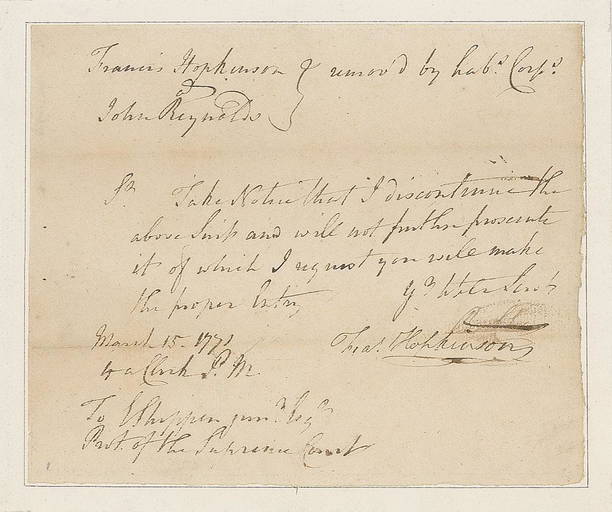 Francis Hopkinson } remov'd by hab.s Corp.s
v
John Reynolds
Sr. Take Notice that I discontinue the
above Suit and will not further prosecute
it of which I request you will make
the proper Entry
Yr. Hble Servt
March 15. 1771
Fras. Hopkinson
4 o Clock P. M.
To E Shippen junr. Esqr.
Prot. of the Supreme Court